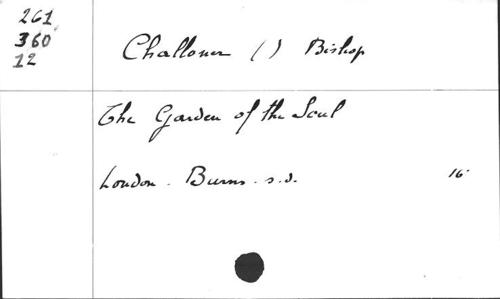 261
360
12
Challoner () Bishop
The Garden of the Soul
London. Burns. s.d.
16